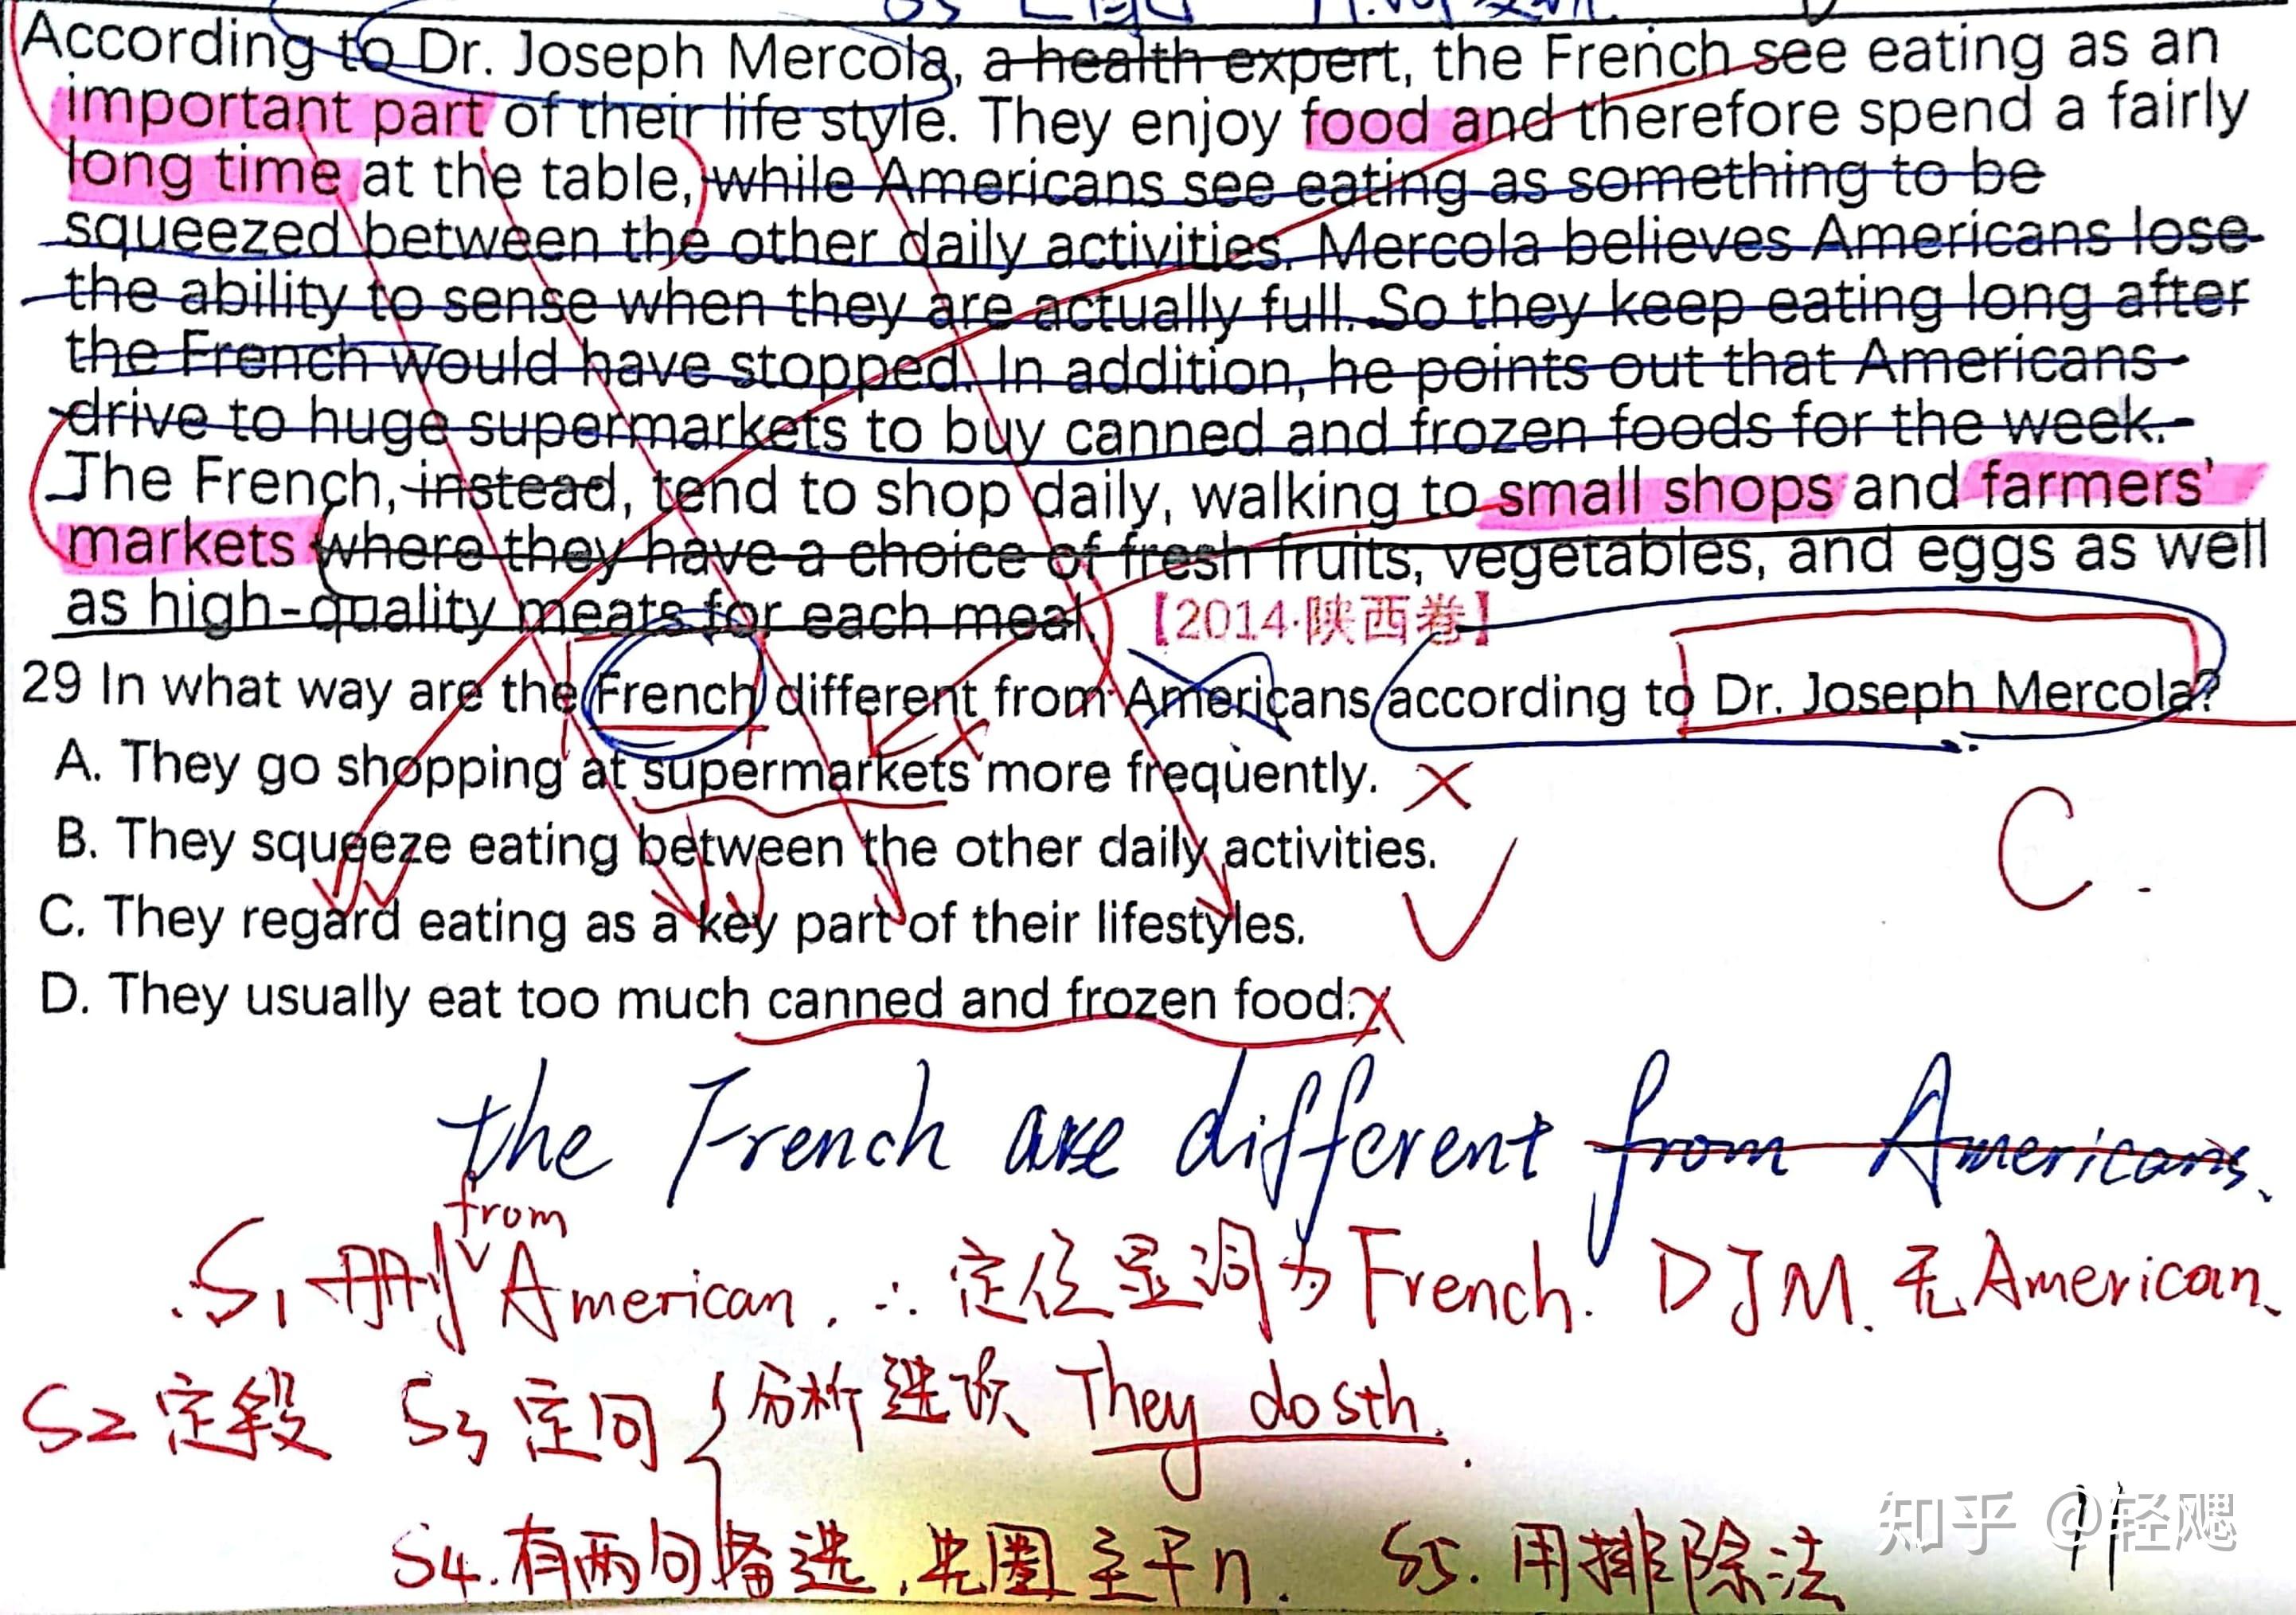 According to Dr. Joseph Mercola, a health expert, the French see eating as an
important part of their life style. They enjoy food and therefore spend a fairly
long time at the table, while Americans see eating as something to be
squeezed between the other daily activities. Mercola believes Americans lose
the ability to sense when they are actually full. So they keep eating long after
the French would have stopped. In addition, he points out that Americans
drive to huge supermarkets to buy canned and frozen foods for the week.
The French, instead, tend to shop daily, walking to small shops and farmers'
markets where they have a choice of fresh fruits, vegetables, and eggs as well
as high-quality meats for each meal. 【2014·陕西卷】
29 In what way are the French different from Americans according to Dr. Joseph Mercola?
A. They go shopping at supermarkets more frequently.
B. They squeeze eating between the other daily activities.
C. They regard eating as a key part of their lifestyles.
C.
D. They usually eat too much canned and frozen food.
the French are different from Americans.
from
S1 删 American. ∴ 定位显词为 French. DJM. 无 American.
S2 定段 S3 定句 分析选项 They do sth.
S4. 有两句备选, 先圈主干n. S5. 用排除法
11
知乎 @轻飔